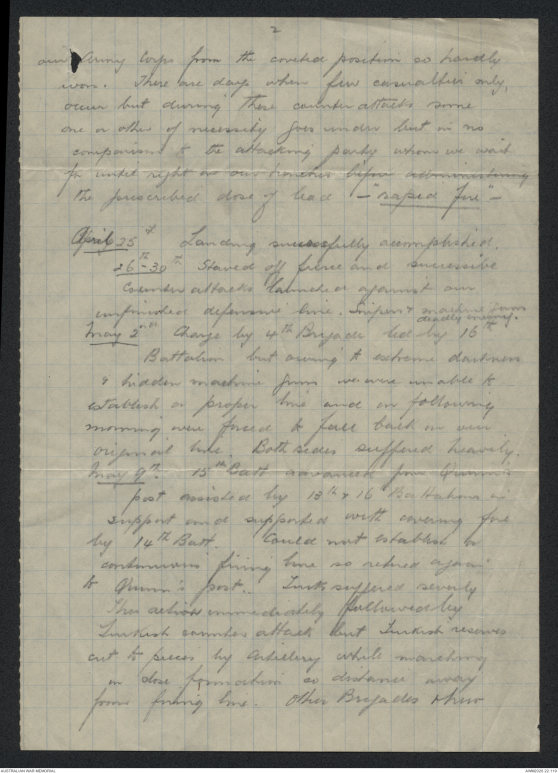 2
our Army Corps from the coveted position so hardly
won. There are days when few casualties only,
occur but during these counter attacks some
one or other of necessity goes under but in no
comparison to the attacking party whom we wait
for until right on our trenches before administering
the prescribed dose of lead – "rapid fire" –
April 25th Landing successfully accomplished.
26th-30th Staved off fierce and successive
counter attacks launched against our
unfinished defensive line. Snipers & machine guns
deadly
May 2nd Charge by 4th Brigade led by 16th
Battalion but owing to extreme darkness
& hidden machine guns we were unable to
establish a proper line and on following
morning were forced to fall back on our
original line. Both sides suffered heavily.
May 9th. 15th Batt advanced from Quinn's
post assisted by 13th & 16 Battalions in
support and supported with covering fire
by 14th Batt. Could not establish a
continuous firing line so retired again
to Quinn's post. Turks suffered severely
This action immediately followed by
Turkish counter attack but Turkish reserves
cut to pieces by artillery while marching
in close formation so distance away
from firing line. Other Brigades
AUSTRALIAN WAR MEMORIAL